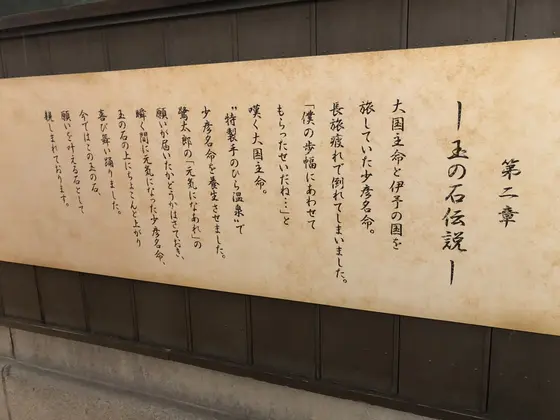 第二章
ー玉の石伝説ー
大国主命と伊予の国を
旅していた少彦名命。
長旅疲れで倒れてしまいました。
「僕の歩幅にあわせて
もらったせいだね…」と
嘆く大国主命。
“特製手のひら温泉”で
少彦名命を養生させました。
鷺太郎の「元気になあれ」の
願いが届いたかどうかはさておき、
瞬く間に元気になった少彦名命、
玉の石の上にちょこんと上がり
喜び舞い踊りました。
今ではこの玉の石、
願いを叶える石として
親しまれております。